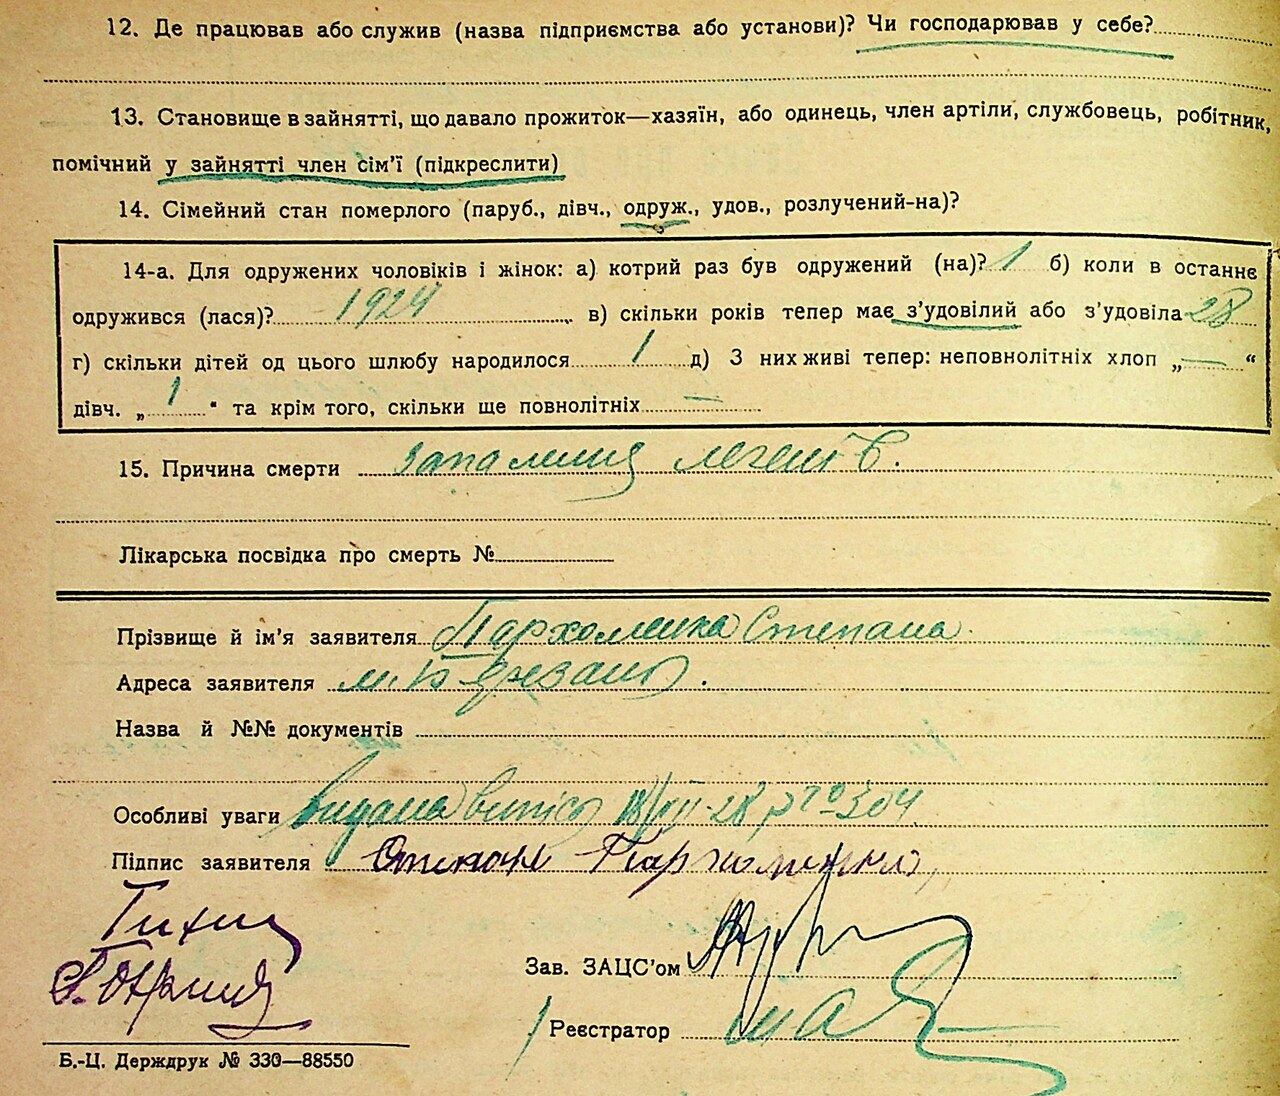 12. Де працював або служив (назва підприємства або установи)? Чи господарював у себе?
13. Становище в зайнятті, що давало прожиток—хазяїн, або одинець, член артіли, службовець, робітник,
помічний у зайнятті член сім'ї (підкреслити)
14. Сімейний стан померлого (паруб., дівч., одруж., удов., розлучений-на)?
14-а. Для одружених чоловіків і жінок: а) котрий раз був одружений (на)? 1 б) коли в останнє
одружився (лася)? 1924 в) скільки років тепер має з'удовілий або з'удовіла 28
г) скільки дітей од цього шлюбу народилося 1 д) З них живі тепер: неповнолітніх хлоп „—“
дівч. „1“ та крім того, скільки ще повнолітніх —
15. Причина смерти запалення легенів.
Лікарська посвідка про смерть №
Прізвище й ім'я заявителя Пархоменка Степана
Адреса заявителя м. Березань.
Назва й №№ документів
Особливі уваги видана випись 18/VII-28 р № 304
Підпис заявителя Степан Пархоменко
Зав. ЗАЦС'ом
Реєстратор
Б.-Ц. Держдрук № 330—88550